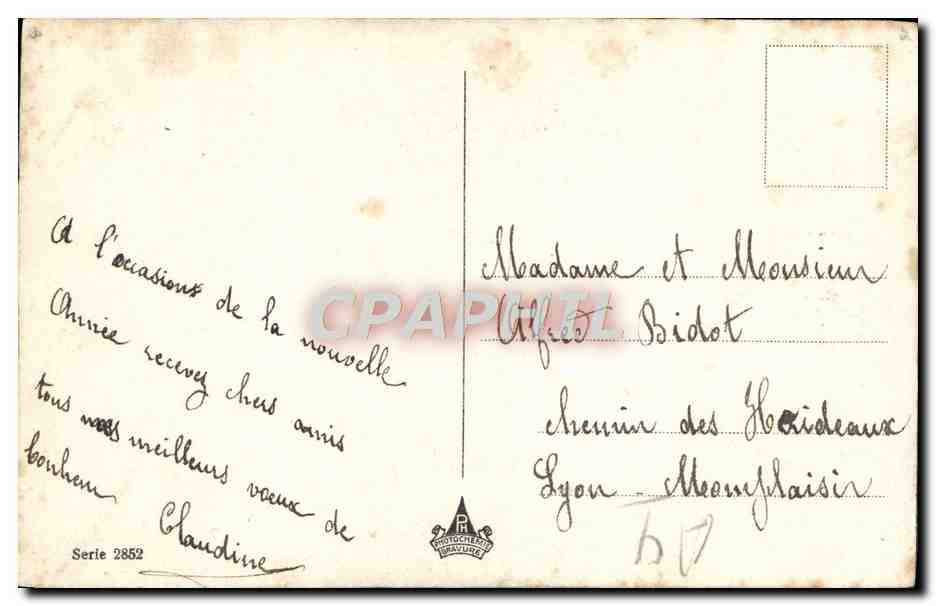 A l'occasion de la nouvelle
Année recevez chers amis
tous nos meilleurs voeux de
bonheur
Claudine
Serie 2852
PH
PHOTOCHEMIE
GRAVURE
CPAPHIL
Madame et Monsieur
Alfred Bidot
chemin des
Lyon - Monplaisir
50